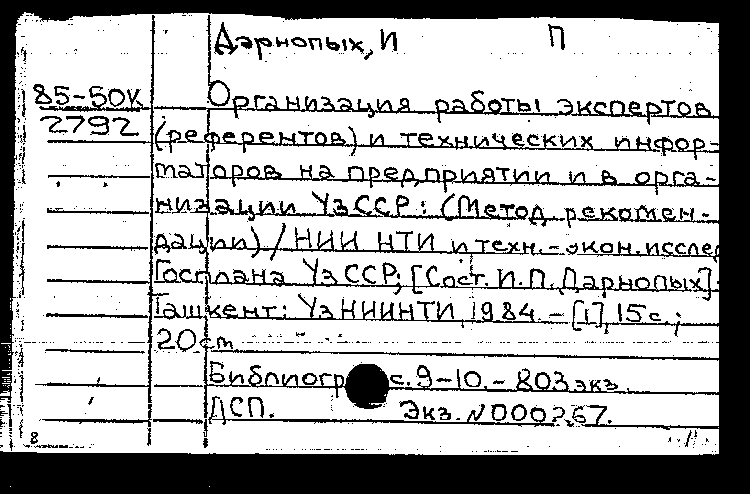 Дарнопых, И П
85-50К Организация работы экспертов
2792 (референтов) и технических инфор-
маторов на предприятии и в орга-
низации УзССР: (Метод. рекомен-
дации) / НИИ НТИ и техн.-экон. исслед
Госплана УзССР; [Сост. И.П. Дарнопых].
Ташкент: УзНИИНТИ, 1984. - [1], 15 с.;
20 см
Библиогр с. 9-10. - 803 экз.
ДСП. Экз. №000267.
8